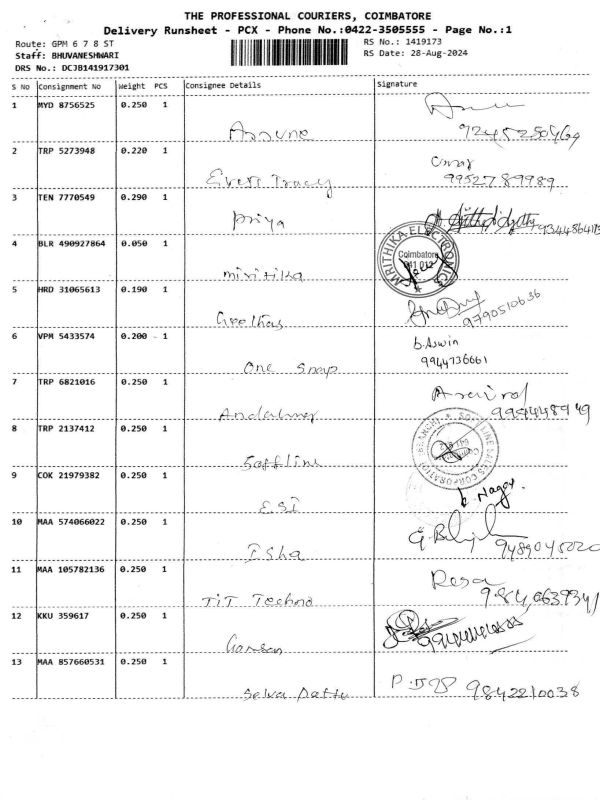 THE PROFESSIONAL COURIERS, COIMBATORE
Delivery Runsheet - PCX - Phone No.:0422-3505555 - Page No.:1
Route: GPM 6 7 8 ST
RS No.: 1419173
Staff: BHUVANESHWARI
RS Date: 28-Aug-2024
DRS No.: DCJB141917301
S No Consignment No Weight PCS Consignee Details Signature
1 MYD 8756525 0.250 1
2 TRP 5273948 0.220 1
Evers Tracy 9952789989
3 TEN 7770549 0.290 1
Priya
4 BLR 490927864 0.050 1
MRITHIKA ELECTRONICS
Coimbatore
641 012
miritika
5 HRD 31065613 0.190 1
9790510636
6 VPM 5433574 0.200 1
b.Aswin
9944736661
One Snap
7 TRP 6821016 0.250 1
8 TRP 2137412 0.250 1
Softline
9 COK 21979382 0.250 1
ESI
10 MAA 574066022 0.250 1
Isha
11 MAA 105782136 0.250 1
TIT Techno
12 KKU 359617 0.250 1
Ganesan
13 MAA 857660531 0.250 1
9842210038